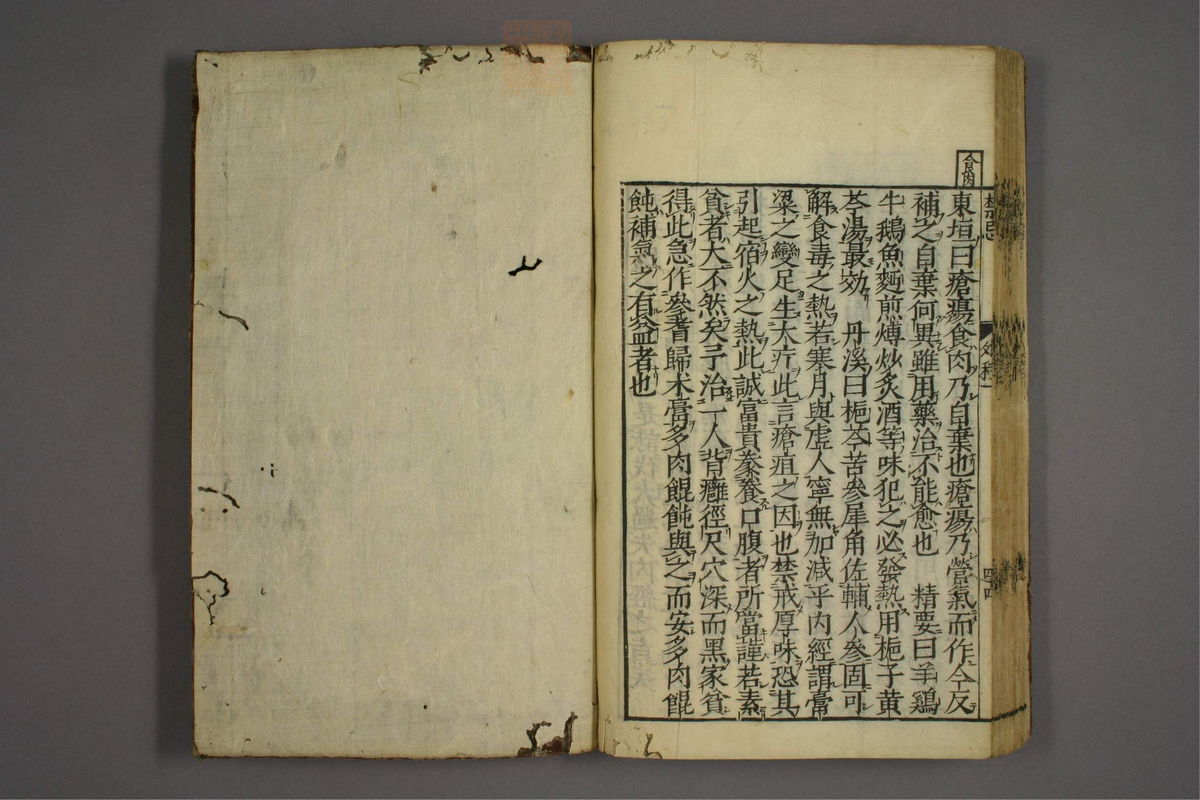 食肉
禁忌
外科一
四四
東垣曰瘡瘍食肉乃自棄也瘡瘍乃營氣而作今反
補之自棄何異雖用藥治不能愈也　精要曰羊鷄
牛鵝魚麵煎煿炒炙酒等味犯之必發熱用梔子黃
芩湯最効　丹溪曰梔芩苦參犀角佐輔人參固可
解食毒之熱若寒月與虛人寧無加減乎內經謂膏
粱之變足生大疔此言瘡疽之因也禁戒厚味恐其
引起宿火之熱此誠富貴豢養口腹者所當謹若素
貧者大不然矣予治一人背癰徑尺穴深而黑家貧
得此急作參耆歸朮膏多肉餛飩與之而安多肉餛
飩補氣之有益者也